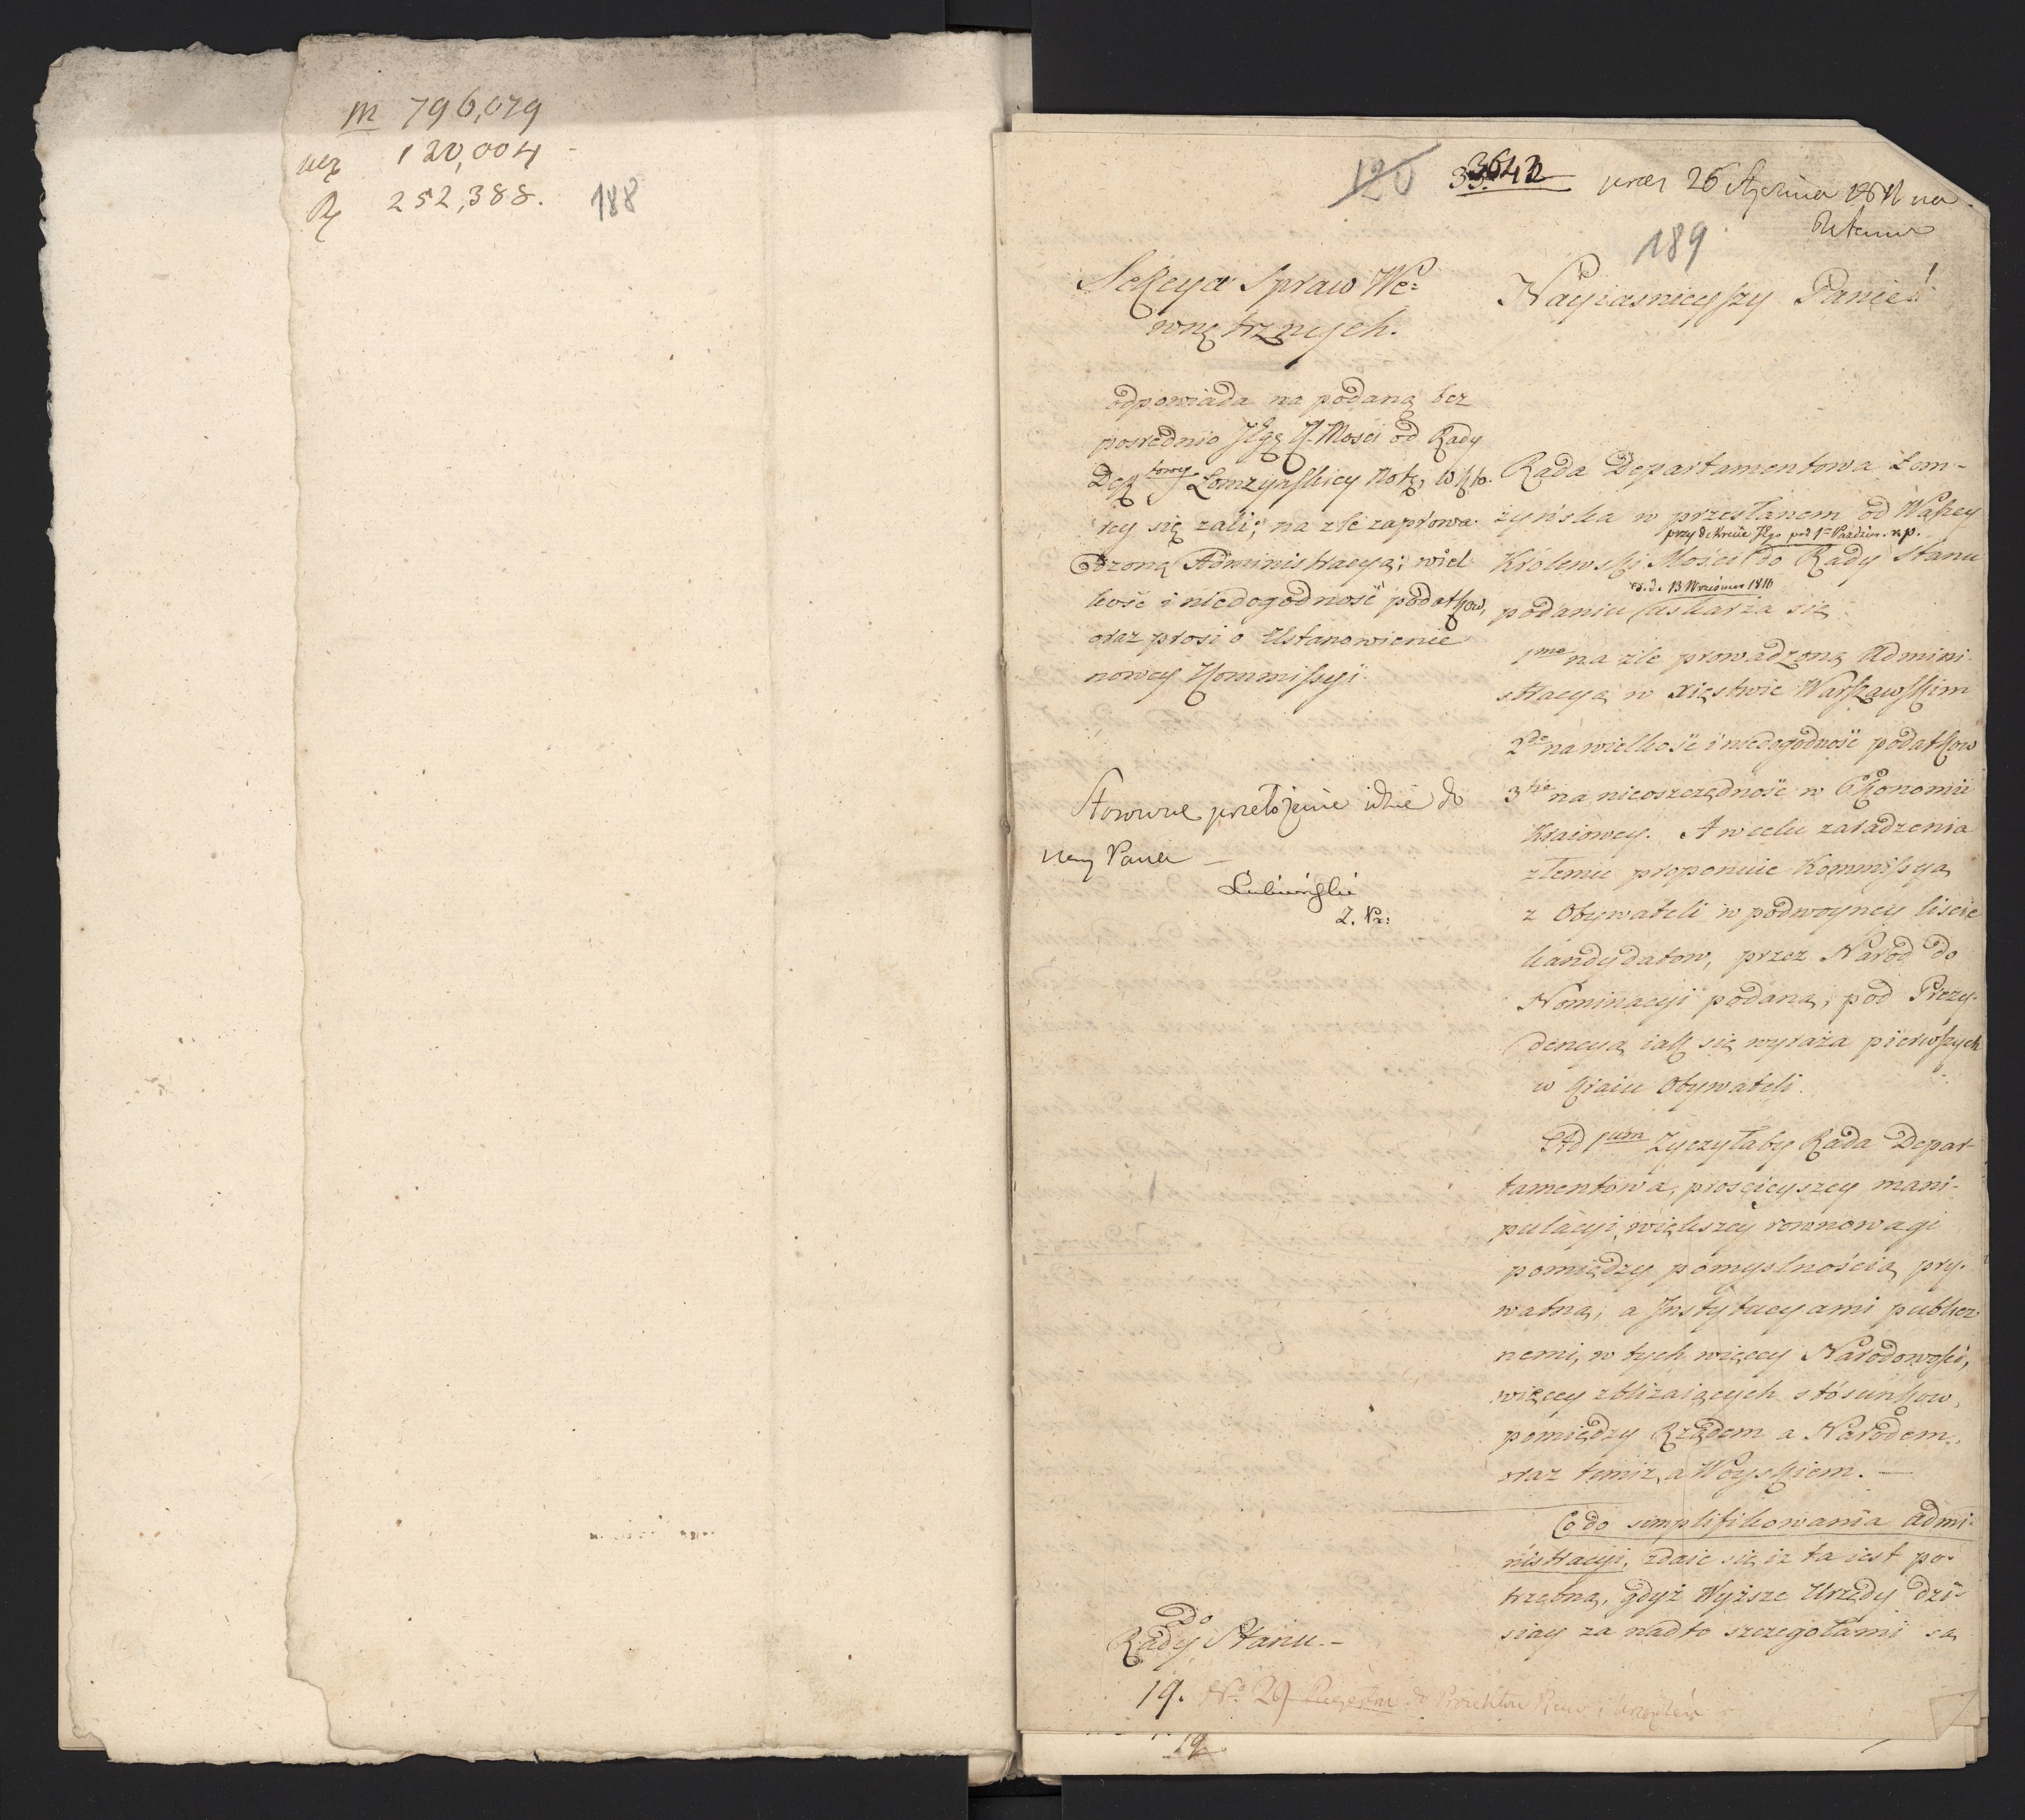 m 796,079
120,004
252,388.
188
120
3642
26 Stycznia
189
Sekcya Spraw We:
wnętrznych.
odpowiada na podaną bez
posrednio JKgę K. Mosci od Rady
Dep towey Łomżyńskiey Notę, w kto-
rey się żali; na złe zaprowa-
dzoną Administracyą; wiel
kość i niedogodność podatkow,
oraz prosi o Ustanowienie
nowey Kommissyi
Stosowne przełożenie idzie do
Nay Pana —
Łubieński
Z. Pr:
Do
Rady Stanu. –
19. No. 29
Nayiasnieyszy Panie!
Rada Departamentowa Łom-
żyńska w przesłanem od Waszey
przy dekrecie Jego pod 1 Paździer. r. p.
Królewskj Mości do Rady Stanu
d. d. 13 Września 1810
podaniu uskarża się
1mo na źle prowadzoną Admini-
stracyą w xięstwie Warszawskim
2do na wielkość i niedogodność podatkow
3tio na nieoszczędność w Ekonomii
Kraiowey. A w celu zaradzenia
złemu proponuie Kommissyą
z Obywateli w podwoyney liscie
kandydatow, przez Narod do
Nominacyi podaną, pod Prezy-
dencyą iak się wyraża pierwszych
w kraiu Obywateli.
Ad 1um Zyczyłaby Rada Depar-
tamentowa, prosciejszey mani-
pulacyi, większey rownowagi
pomiędzy pomyslnością pry-
watną, a Instytucyami publicz-
nemi, w tych więcey Narodowości,
więcey zbliżaiących stosunkow,
pomiędzy Rządem a Narodem,
oraz temiż, a Woyskiem. —
Co do simplifikowania Admi-
nistracyi, zdaie się iż ta iest po-
trzebną, gdyż Wyższe Urzędy dzi-
siay za nadto szczegołami są
19